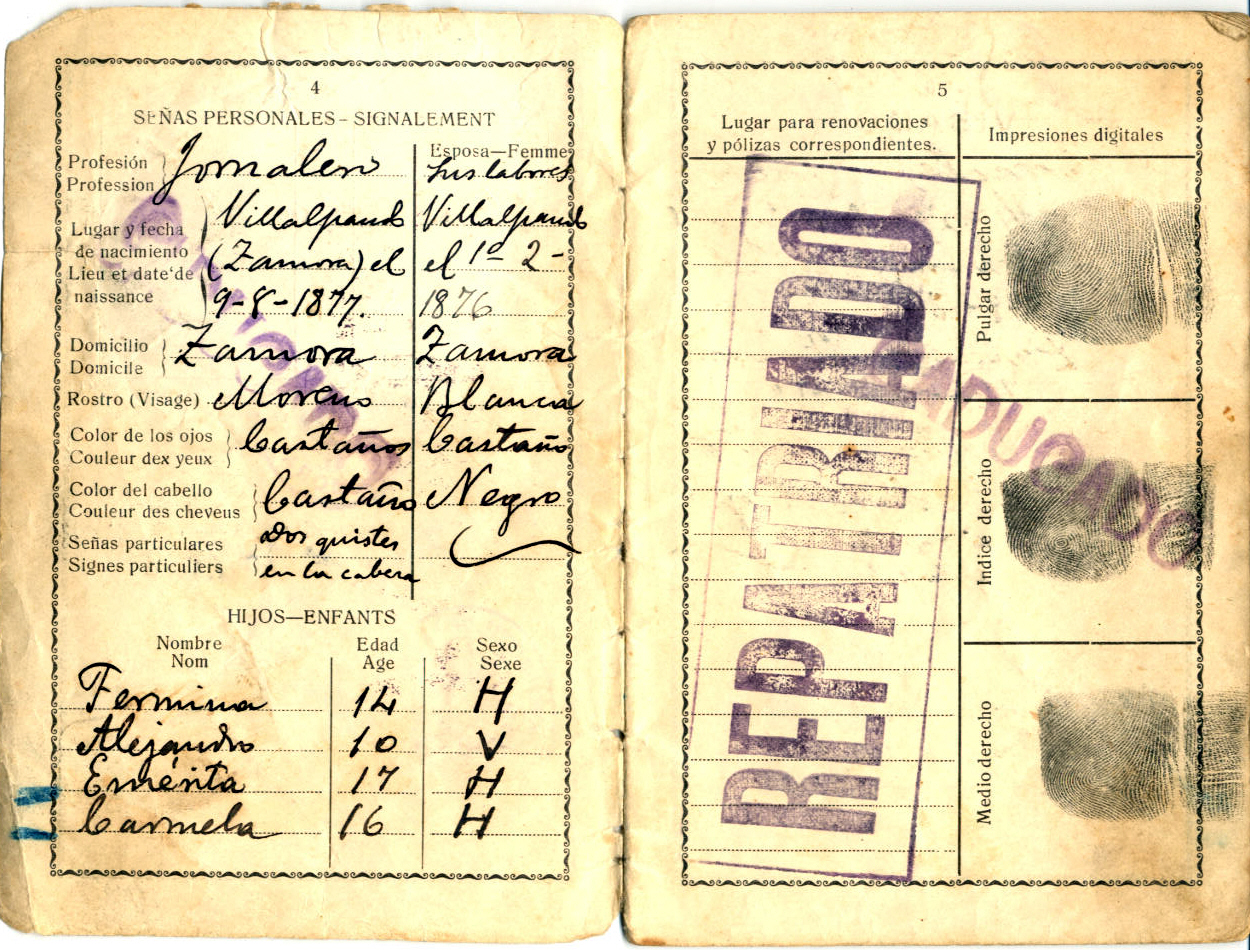 4
SEÑAS PERSONALES - SIGNALEMENT
Esposa—Femme
Profesión Jornalero Sus labores
Profession
Lugar y fecha Villalpando Villalpando
de nacimiento (Zamora) el el 1º 2-
Lieu et date de
naissance 9-8-1877. 1876
Domicilio Zamora Zamora
Domicile
Rostro (Visage) Moreno Blanca
Color de los ojos Castaños Castaño
Couleur dex yeux
Color del cabello Castaño Negro
Couleur des cheveus
Señas particulares Dos quistes
Signes particuliers en la cabeza
HIJOS—ENFANTS
Nombre Edad Sexo
Nom Age Sexe
Fermina 14 H
Alejandro 10 V
Emérita 17 H
Carmela 16 H
5
Lugar para renovaciones
y pólizas correspondientes.
Impresiones digitales
REPATRIADO
CADUCADO
Pulgar derecho
Indice derecho
Medio derecho